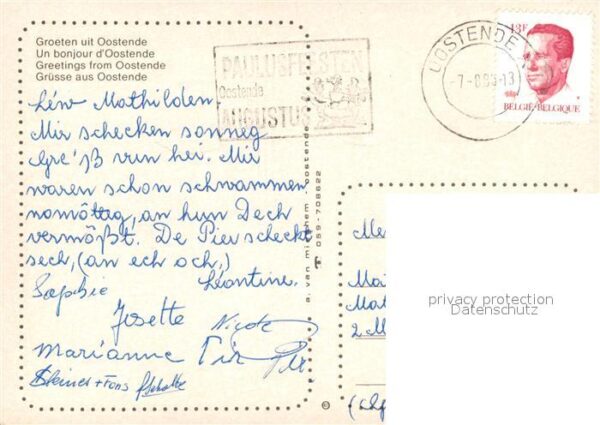 Groeten uit Oostende
Un bonjour d'Oostende
Greetings from Oostende
Grüsse aus Oostende
PAULUSFEESTEN
Oostende
AUGUSTUS
OOSTENDE
13F
BELGIË-BELGIQUE
Léiw Mathilden
Mir schecken sonneg
Gre'ß vun hei. Mir
waren schon schwammen
nomöttag, an hun Dech
vermößt. De Pier scheckt
sech, (an ech och,)
Sophie Léontine.
Josette Nicole
Marianne
+ Fons
059-708622
Me
Mat
2
privacy protection
Datenschutz
©